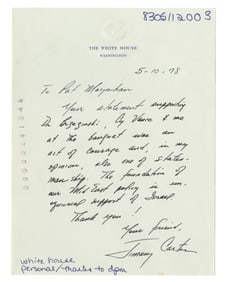 8305112003
THE WHITE HOUSE
WASHINGTON
5-10-78
To Pat Moynihan
Your statement supporting
Dr Brzezinski, Cy Vance & me
at the banquet was an
act of courage and, in my
opinion, also one of states-
manship. The foundation of
our Mid East policy is un-
equivocal support of Israel.
Thank you!
Your friend,
Jimmy Carter
white house
personal/thanks to dpm